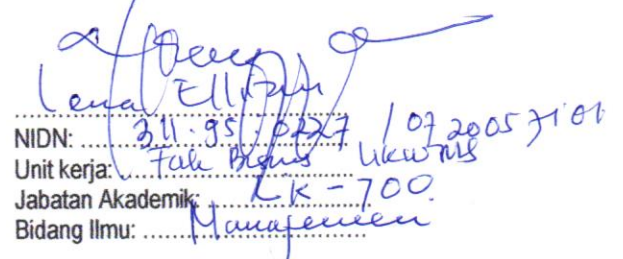 Lena Ellitan
NIDN: 311.95.0227 / 0720057101
Unit kerja: Fak Bisnis UKWMS
Jabatan Akademik: LK - 700
Bidang Ilmu: Manajemen